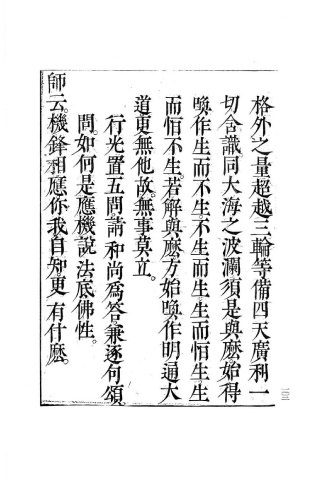 格外之量超越三輪等備四天廣利一
切含識同大海之波瀾須是與麼始得
喚作生而不生不生而生生而恒生生
而恒不生若解與麼方始喚作明通大
道更無他故無事莫立。
行光置五問請和尚為答兼逐句頌
問。如何是應機說法底佛性。
師云。機鋒相應你我自知。更有什麼。
一〇三